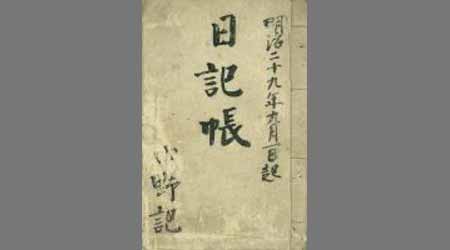 明治二十九年九月一日起
日記帳
小野記